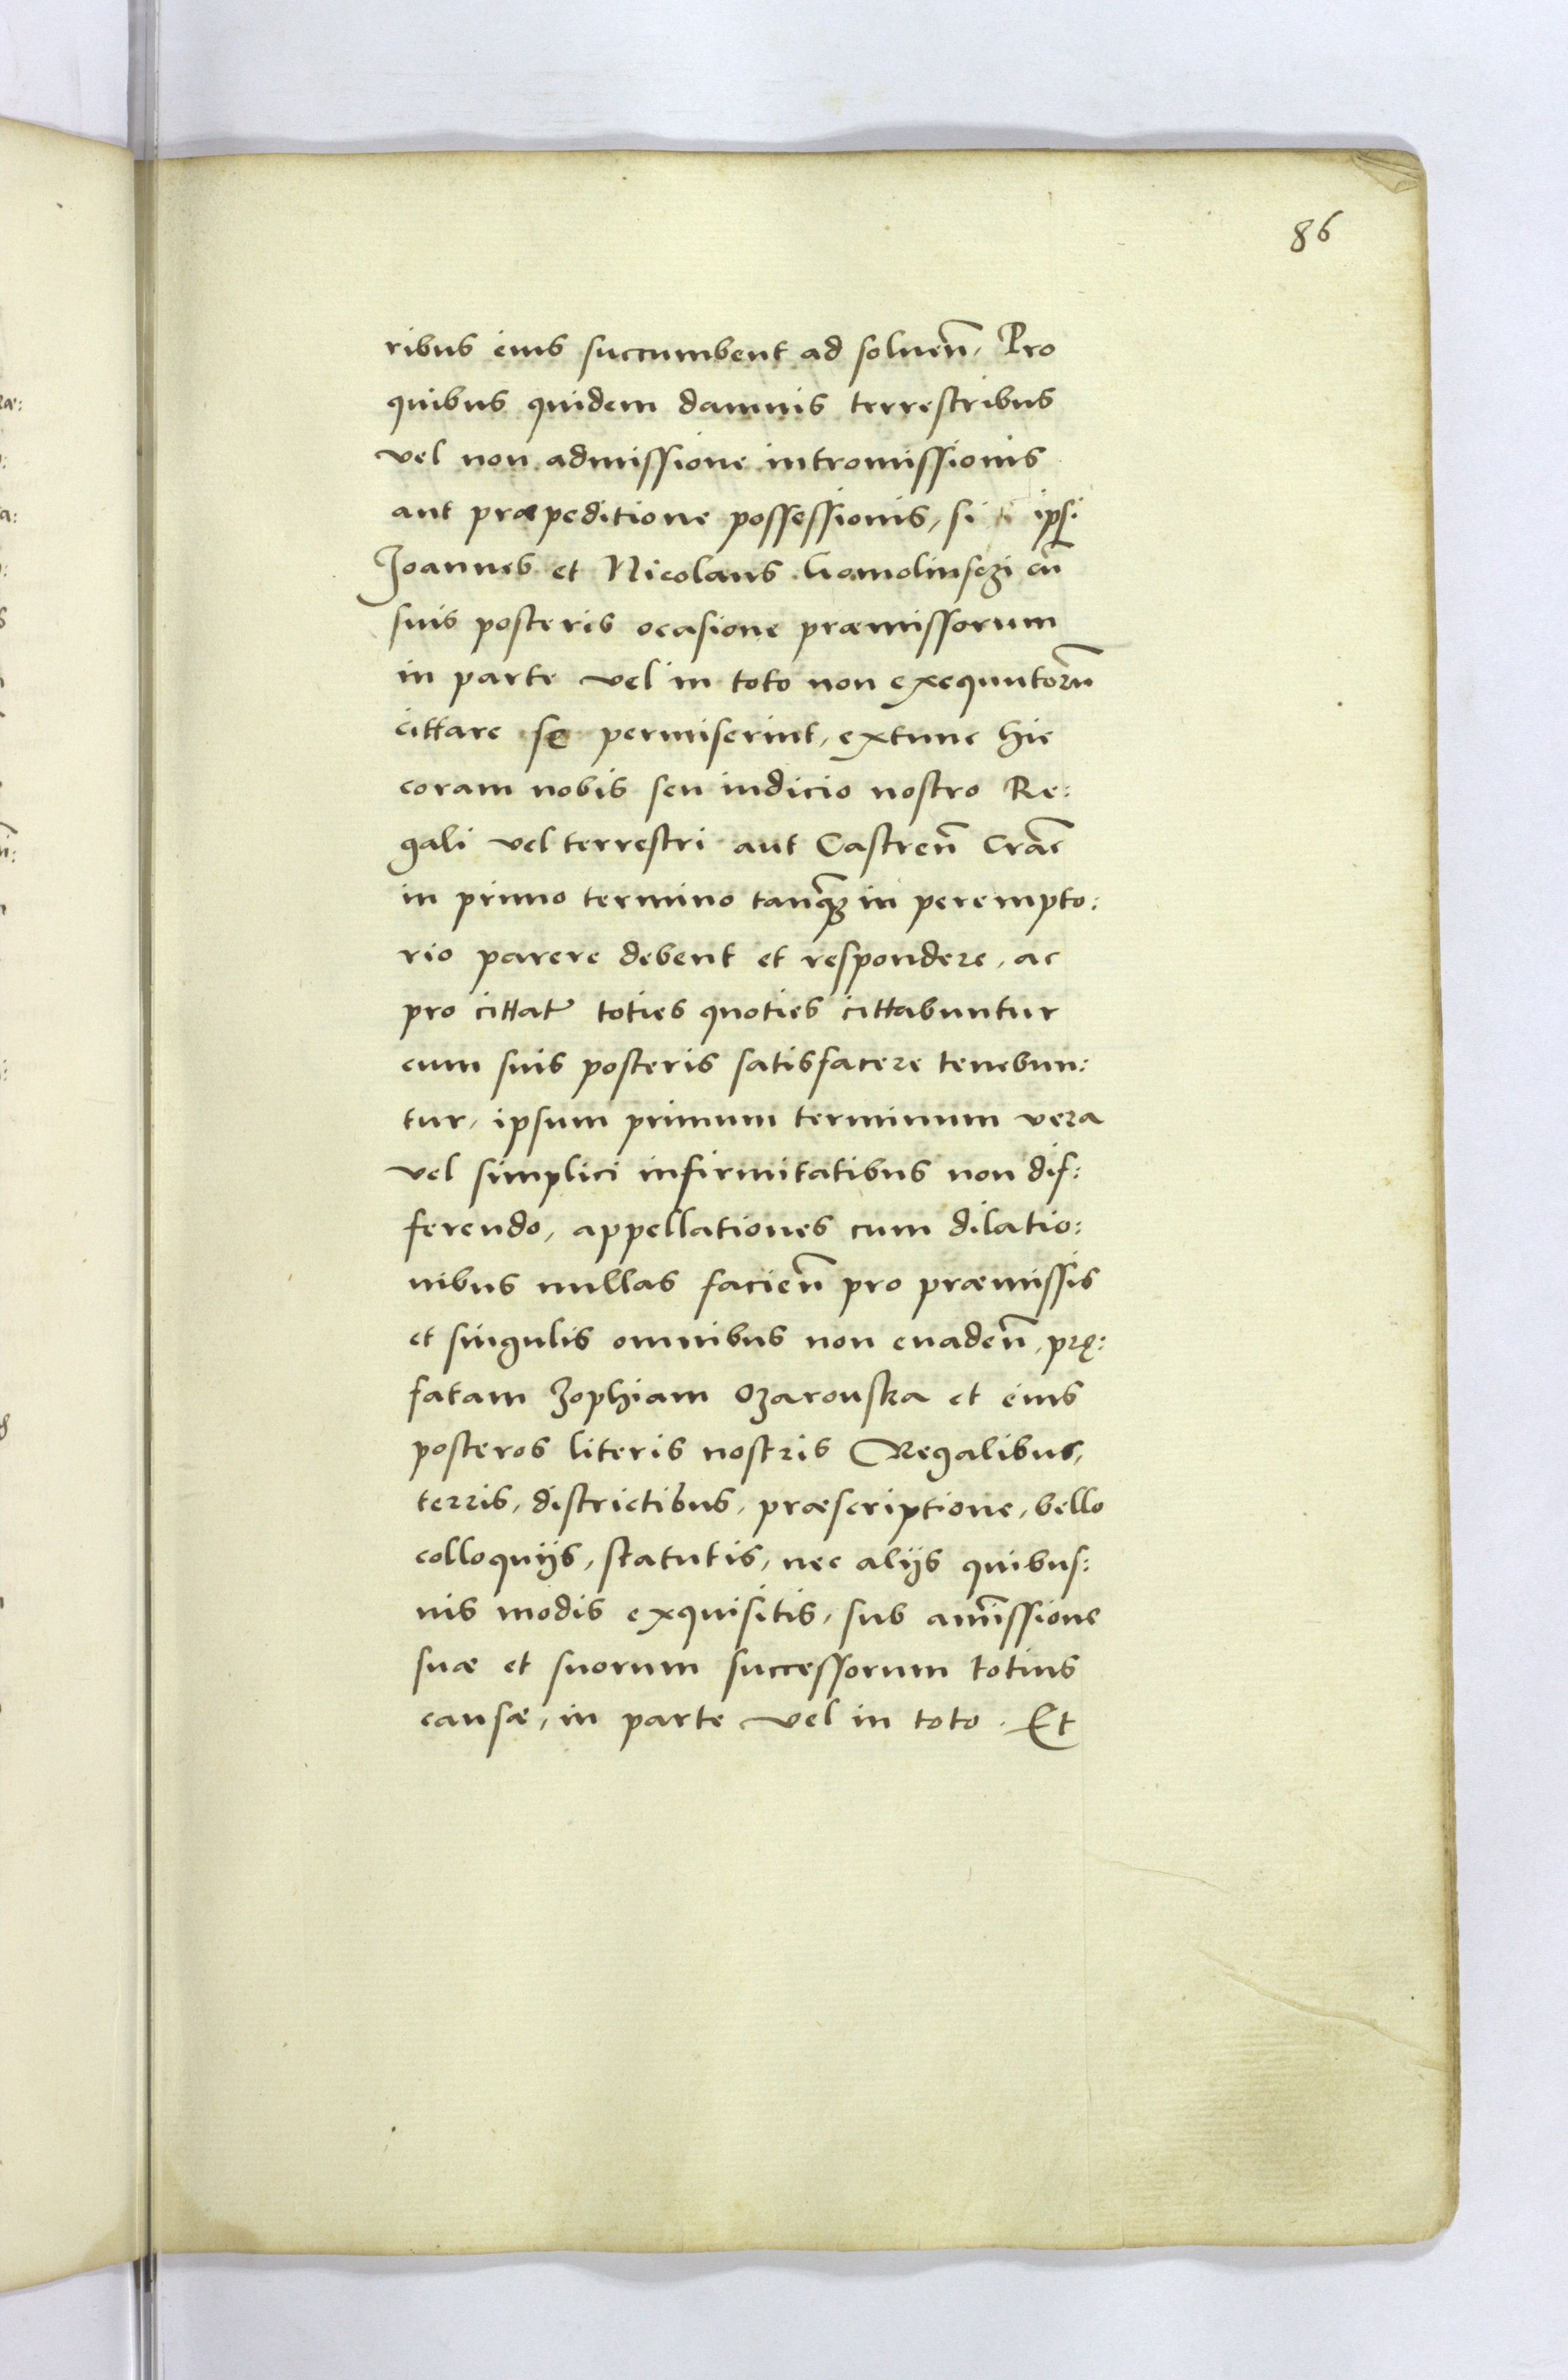 86
ribus eius succumbent ad soluen̄, Pro
quibus quidem damnis terrestribus
vel non admissione intromissionis
aut præpeditione possessionis, si ipsi
Joannes et Nicolaus Gamolinsczi cū
suis posteris ocasione præmissorum
in parte vel in toto non exequutorū
cittare se permiserint, extunc hic
coram nobis seu iudicio nostro Re:
gali vel terrestri aut Castren̄ Crac̄
in primo termino tanq̃ in perempto:
rio parere debent et respondere, ac
pro cittat̃ toties quoties cittabuntur
cum suis posteris satisfacere tenebun:
tur, ipsum primum terminum vera
vel simplici infirmitatibus non dif:
ferendo, appellationes cum dilatio:
nibus nullas facien̄ pro præmissis
et singulis omnibus non euaden̄, prę:
fatam Zophiam Ozarouska et eius
posteros literis nostris Regalibus,
terris, districtibus, præscriptione, bello
colloquijs, statutis, nec alijs quibus:
uis modis exquisitis, sub am̄issione
suæ et suorum successorum totius
causæ, in parte vel in toto. Et